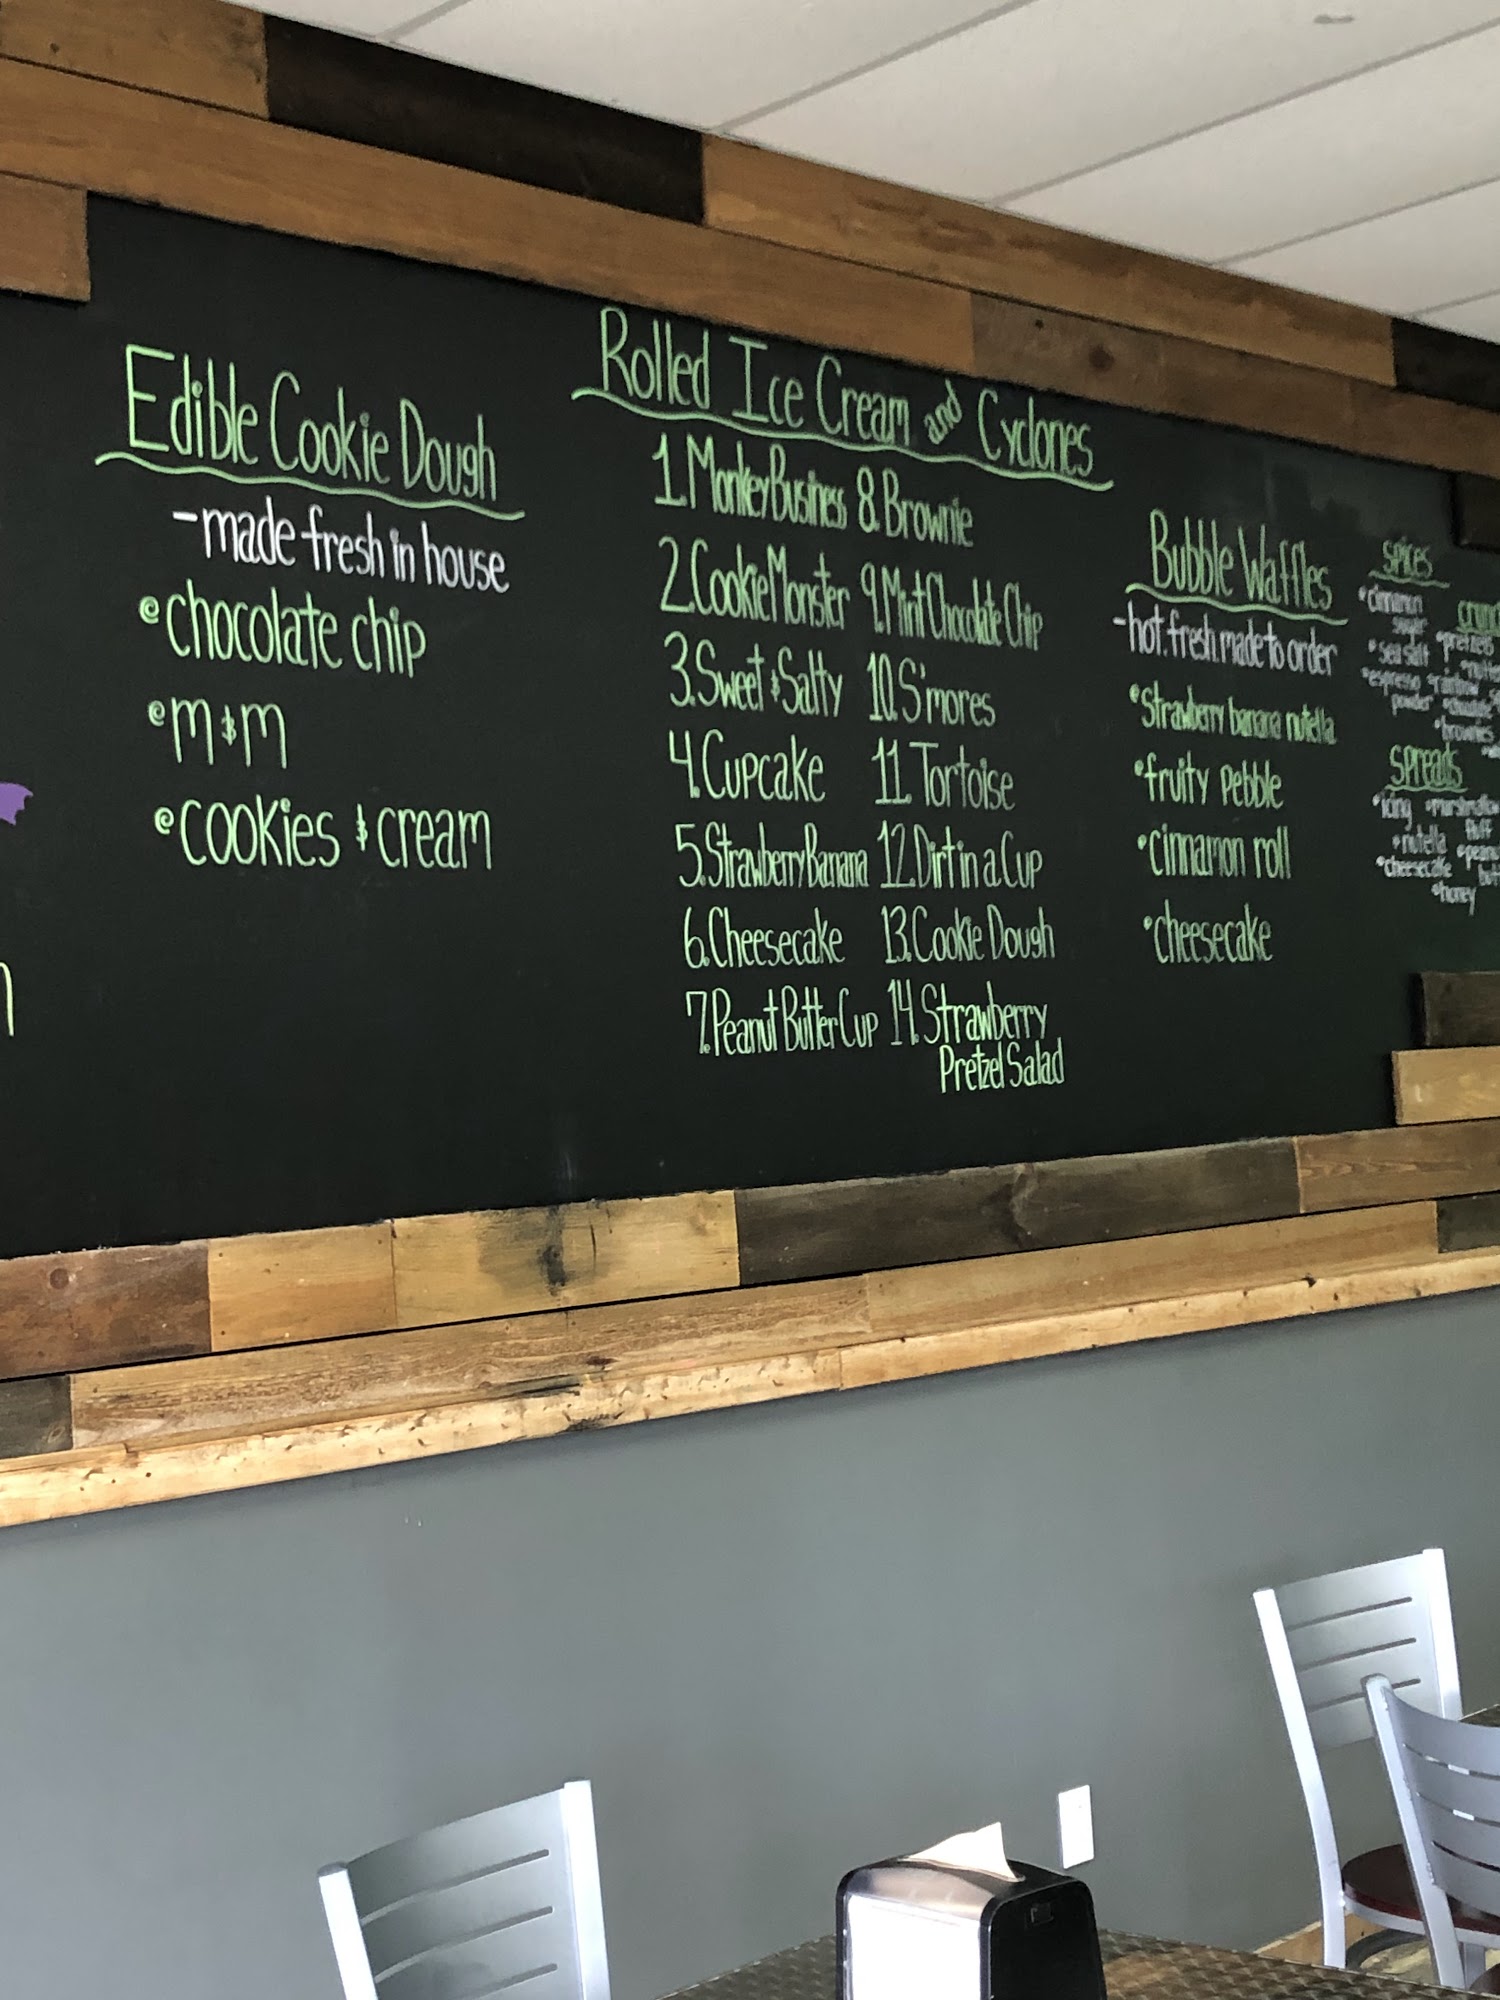 Edible Cookie Dough
- made fresh in house
chocolate chip
m & m
cookies & cream
Rolled Ice Cream and Cyclones
1. Monkey Business
2. Cookie Monster
3. Sweet & Salty
4. Cupcake
5. Strawberry Banana
6. Cheesecake
7. Peanut Butter Cup
8. Brownie
9. Mint Chocolate Chip
10. S'mores
11. Tortoise
12. Dirt in a Cup
13. Cookie Dough
14. Strawberry
Pretzel Salad
Bubble Waffles
- hot. fresh. made to order
• Strawberry banana nutella
• fruity pebble
• cinnamon roll
• cheesecake
spices
• cinnamon
sugar
• sea salt
• espresso
powder
• pretzels
• rainbow
• brownies
spreads
• icing • marshmallow
fluff
• nutella
• cheesecake
• honey